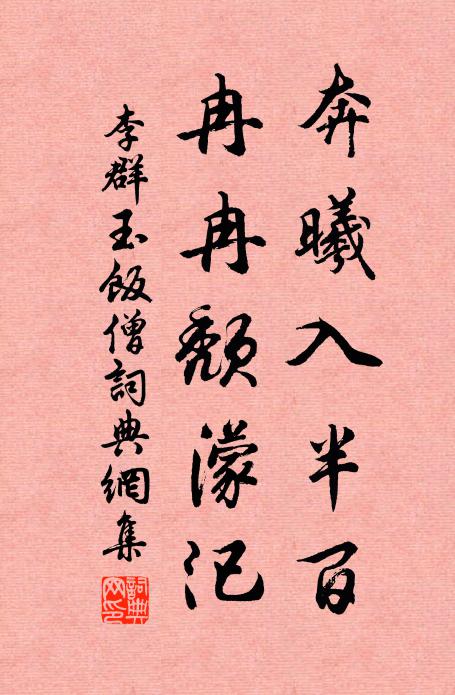 奔曦入半百
冉冉頹濛汜
李群玉飯僧詞典網集
詞典網印